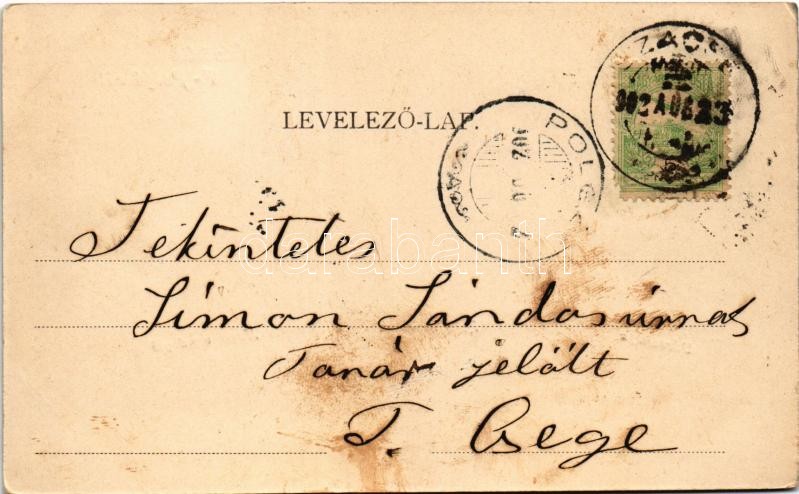 LEVELEZŐ-LAP.
ZACS
902 AUG 23
POLG
902
Tekíntetes
Símon Sándor úrnak
Tanár jelölt
T. Csege
darabanth